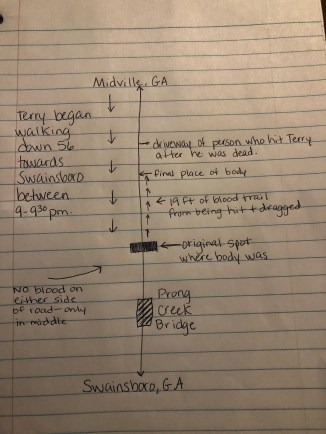 Midville, GA
Terry began
walking
down 56
towards
Swainsboro
between
9-930pm.
driveway of person who hit Terry
after he was dead.
final place of body
19 ft of blood trail
from being hit + dragged
original spot
where body was
No blood on
either side
of road-only
in middle
Prong
Creek
Bridge
Swainsboro, GA